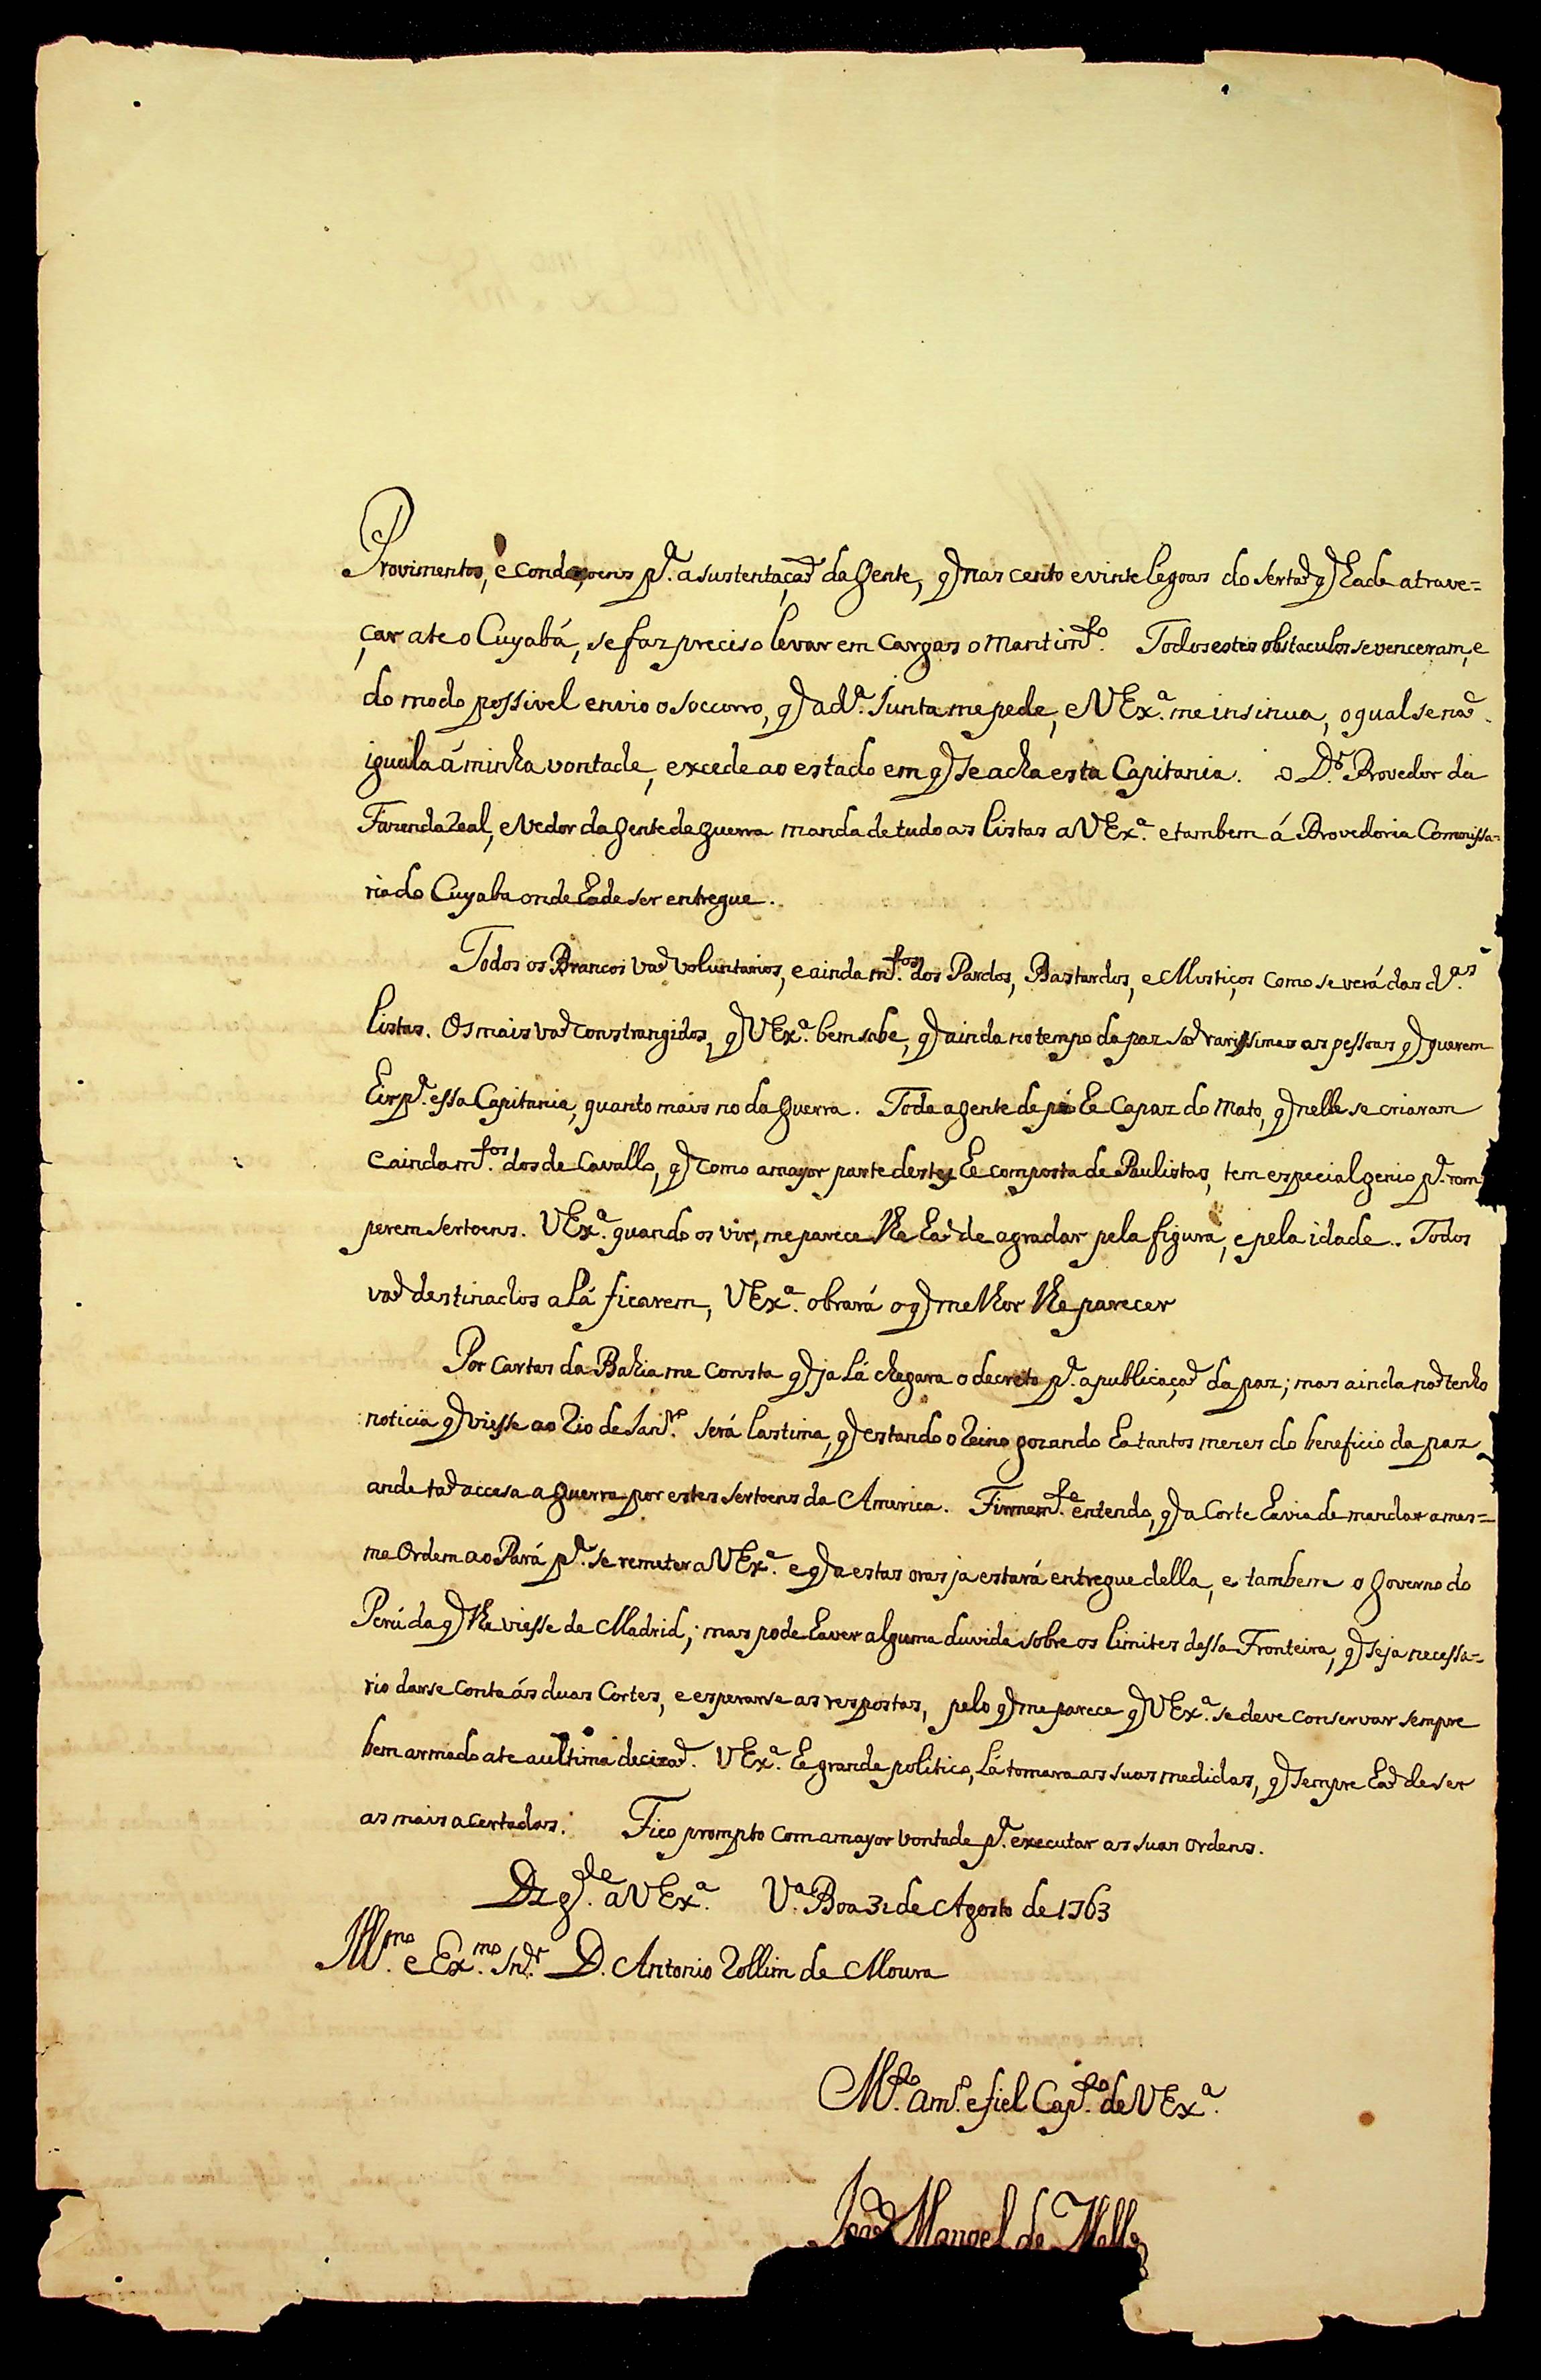 Provimentos, e conduçoens pª. a sustentaçaõ da gente, q̃ nas cento e vinte legoas do sertaõ q̃ hade atrave=
çar ate o Cuyabá, se faz preciso levar em cargas o mantimtº. Todos estes obstaculos se venceram, e
do modo possivel envio o soccorro, q̃ a dª. Junta me pede, e V Exª. me insinua, o qual se naõ
iguala á minha vontade, excede ao estado em q̃ se acha esta Capitania. O Dºr. Provedor da
Fazenda Real, e Vedor da gente de guerra manda de tudo as listas a V Exª. e tambem á Provedoria Comissa=
ria do Cuyaba onde hade ser entregue.
Todos os Brancos vaõ voluntarios, e ainda mtos. dos Pardos, Bastardos, e Mistiços como se verá das dªs.
listas. Os mais vaõ constrangidos, q̃ V Exª. bem sabe, q̃ ainda no tempo da paz saõ rarissimas as pessoas q̃ querem
hir pª. essa Capitania, quanto mais no da guerra. Toda a gente de pé he capaz do mato, q̃ nelle se criaram
e ainda mtos. dos de Cavallo, q̃ como a mayor parte destes he composta de Paulistas, tem especial genio pª. rom
perem sertoens. V Exª. quando os vir, me parece lhe haõ de agradar pela figura, e pela idade. Todos
vaõ destinados a lá ficarem, V Exª. obrará o q̃ melhor lhe parecer
Por cartas da Bahia me consta q̃ ja lá chegara o decreto pª. a publicaçaõ da paz; mas ainda naõ tenho
noticia q̃ viesse ao Rio de Janrº. Será lastima, q̃ estando o Reino gozando ha tantos mezes do beneficio da paz
ande taõ accesa a guerra por estes sertoens da America. Firmemte. entendo, q̃ a Corte havia de mandar a mes=
ma Ordem ao Pará pª. se remeter a V Exª. e q̃ a estas oras ja estará entregue della, e tambem o governo do
Perú da q̃ lhe viesse de Madrid; mas pode haver alguma duvida sobre os limites dessa Fronteira, q̃ seja necessa=
rio darse conta ás duas Cortes, e esperarse as respostas, pelo q̃ me parece q̃ V Exª. se deve conservar sempre
bem armado ate a ultima decizaõ. V Exª. he grande politico, lá tomara as suas medidas, q̃ sempre haõ de ser
as mais acertadas. Fico prompto com a mayor vontade pª. executar as suas ordens.
Ds gde. a V Exª. Vª. Boa 31 de Agosto de 1763
Illmo. e Exmo. Snr. D. Antonio Rollim de Moura
Mtº. amº. e fiel Captº. de V Exª.
Joaõ Manoel de Mello